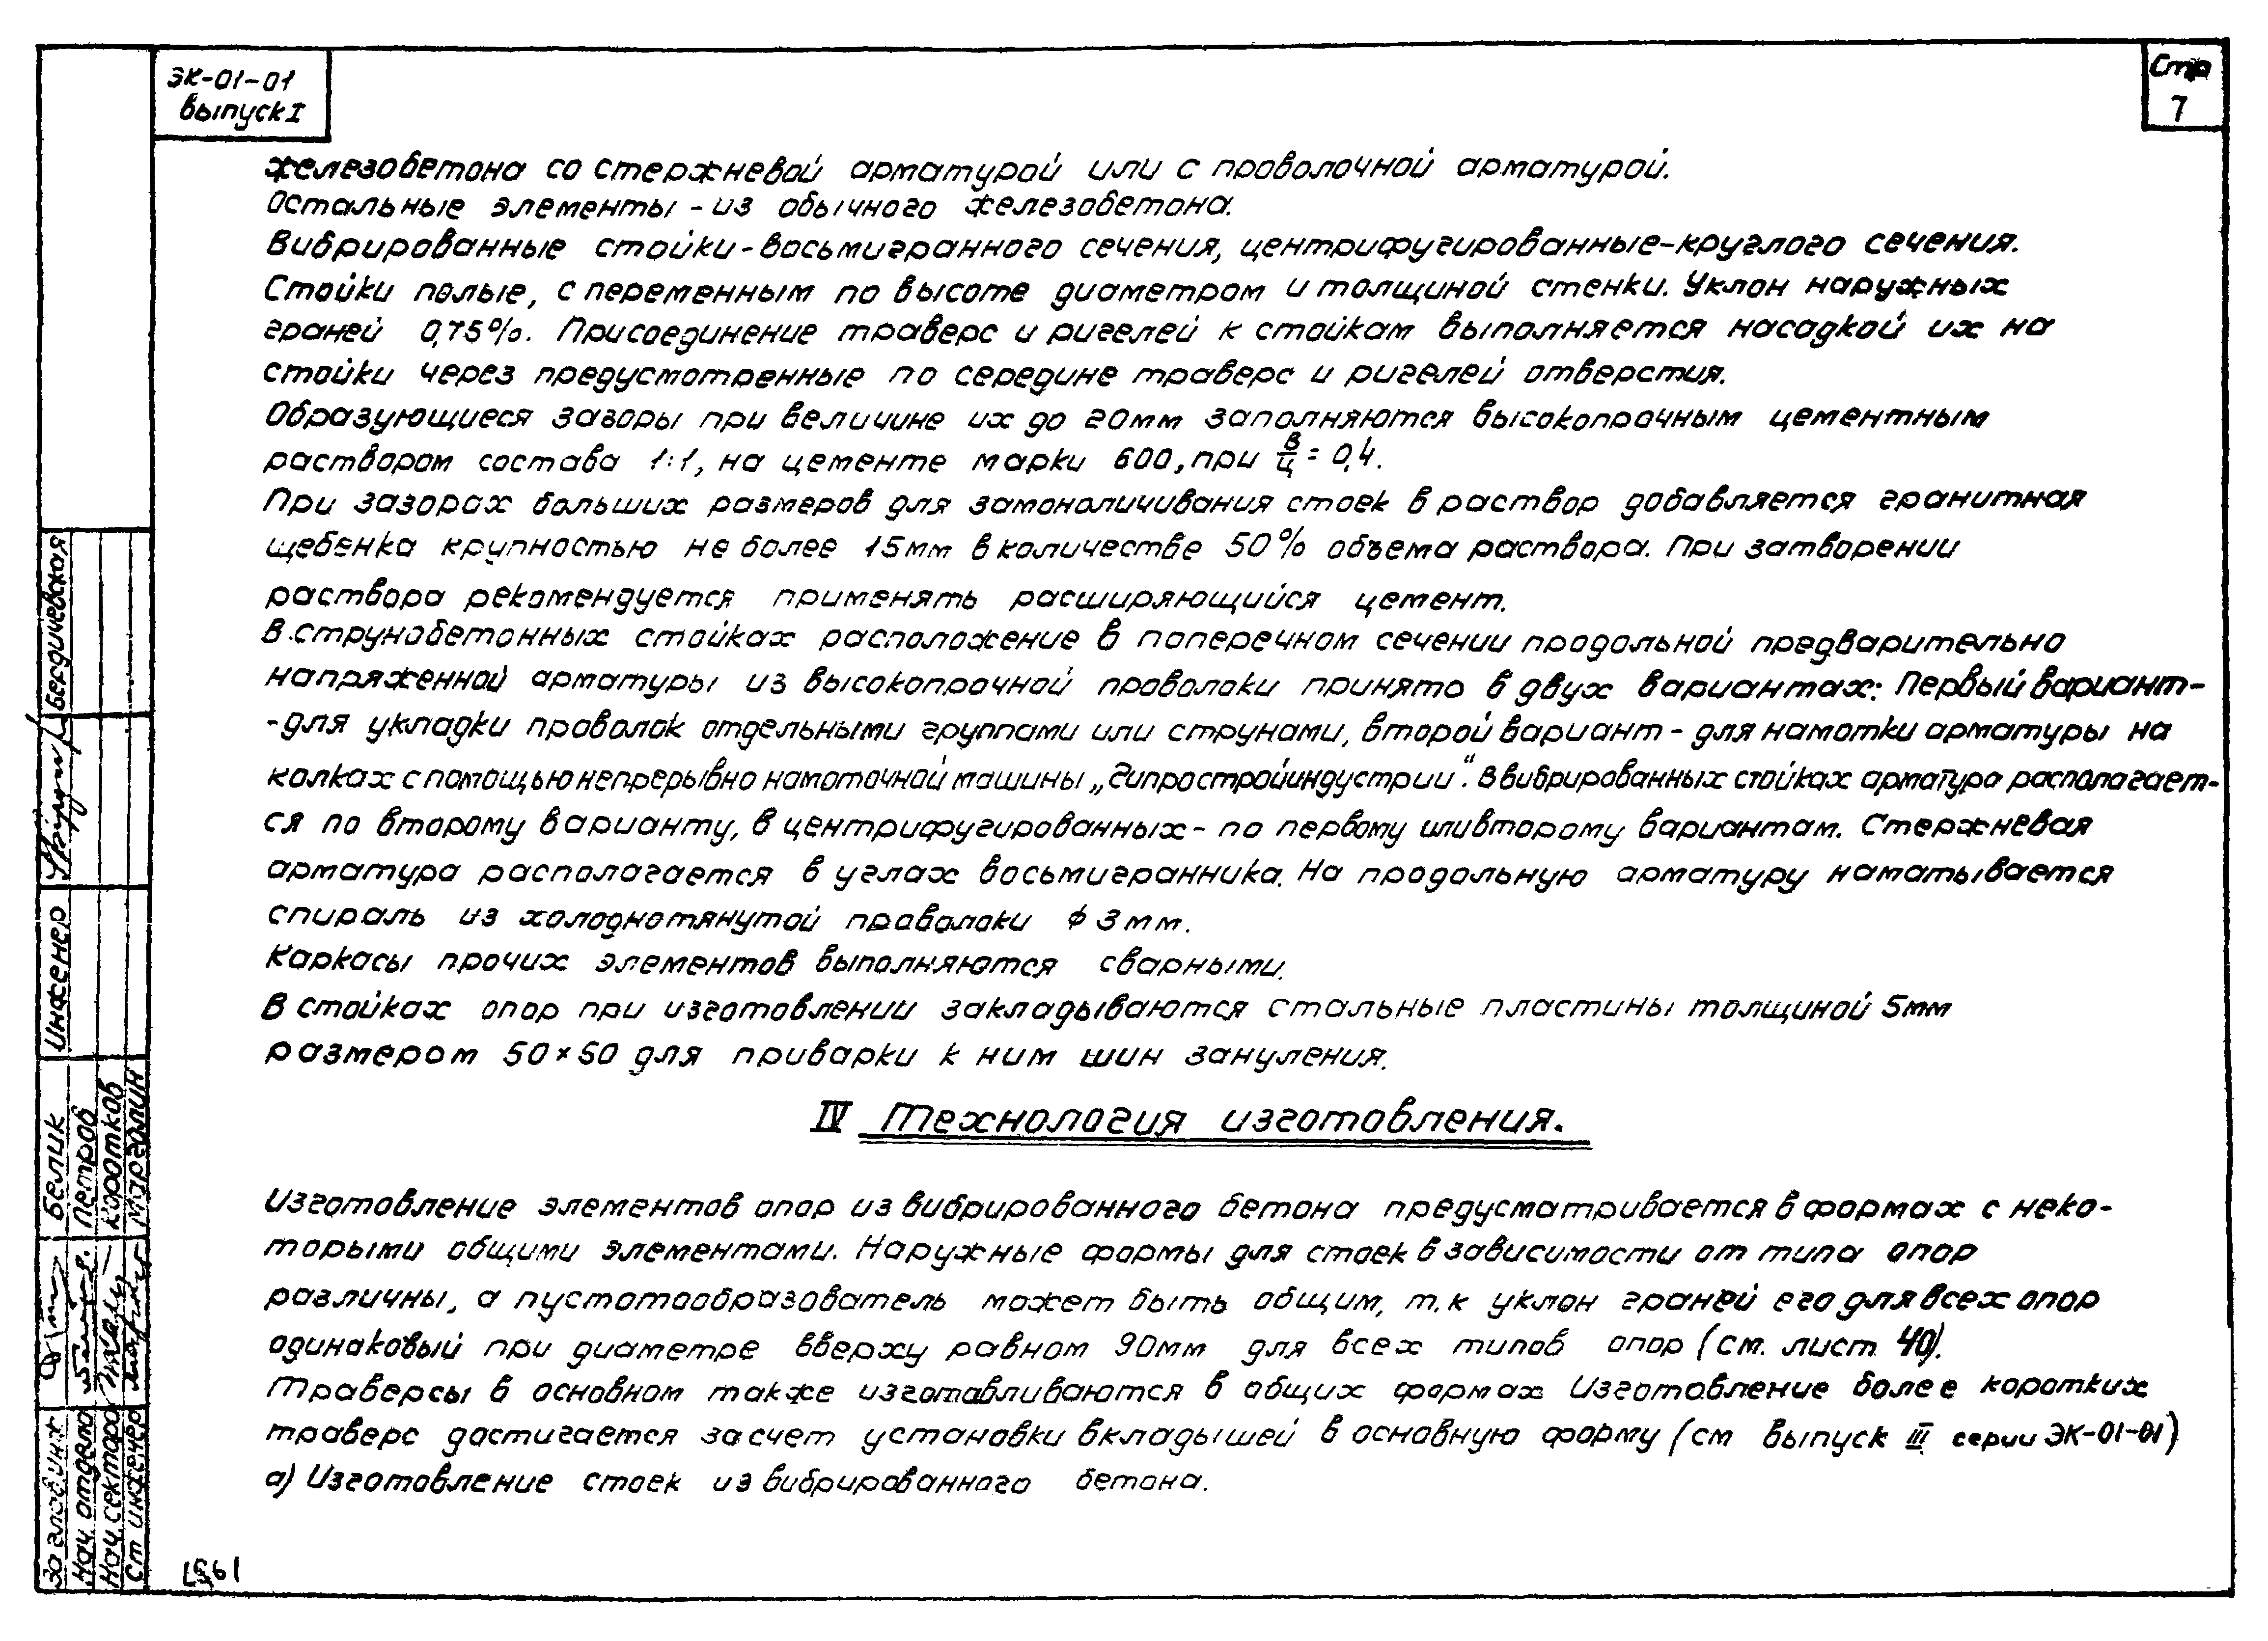 ЭК-01-01
Выпуск I
Стр
7
железобетона со стержневой арматурой или с проволочной арматурой.
Остальные элементы - из обычного железобетона.
Вибрированные стойки - восьмигранного сечения, центрифугированные - круглого сечения.
Стойки полые, с переменным по высоте диаметром и толщиной стенки. Уклон наружных
граней 0,75%. Присоединение траверс и ригелей к стойкам выполняется насадкой их на
стойки через предусмотренные по середине траверс и ригелей отверстия.
Образующиеся зазоры при величине их до 20мм заполняются высокопрочным цементным
раствором состава 1:1, на цементе марки 600, при В/Ц = 0,4.
При зазорах больших размеров для замоноличивания стоек в раствор добавляется гранитная
щебенка крупностью не более 15мм в количестве 50% объема раствора. При затворении
раствора рекомендуется применять расширяющийся цемент.
В струнобетонных стойках расположение в поперечном сечении продольной предварительно
напряженной арматуры из высокопрочной проволоки принято в двух вариантах: Первый вариант-
-для укладки проволок отдельными группами или струнами, второй вариант - для намотки арматуры на
колках с помощью непрерывно намоточной машины „Гипростройиндустрии". В вибрированных стойках арматура располагает-
ся по второму варианту, в центрифугированных - по первому или второму вариантам. Стержневая
арматура располагается в углах восьмигранника. На продольную арматуру наматывается
спираль из холоднотянутой проволоки ϕ 3мм.
Каркасы прочих элементов выполняются сварными.
В стойках опор при изготовлении закладываются стальные пластины толщиной 5мм
размером 50×50 для приварки к ним шин зануления.
IV Технология изготовления.
Изготовление элементов опор из вибрированного бетона предусматривается в формах с неко-
торыми общими элементами. Наружные формы для стоек в зависимости от типа опор
различны, а пустотообразователь может быть общим, т.к уклон граней его для всех опор
одинаковый при диаметре вверху равном 90мм для всех типов опор (см. лист 40).
Траверсы в основном также изготавливаются в общих формах Изготовление более коротких
траверс достигается за счет установки вкладышей в основную форму (см выпуск III серии ЭК-01-01)
а) Изготовление стоек из вибрированного бетона.
Бердичевская
Инженер
Белик
Петров
Коротков
Марголин
За гл овинж
Нач. отдела
Нач. сектора
Ст инженер